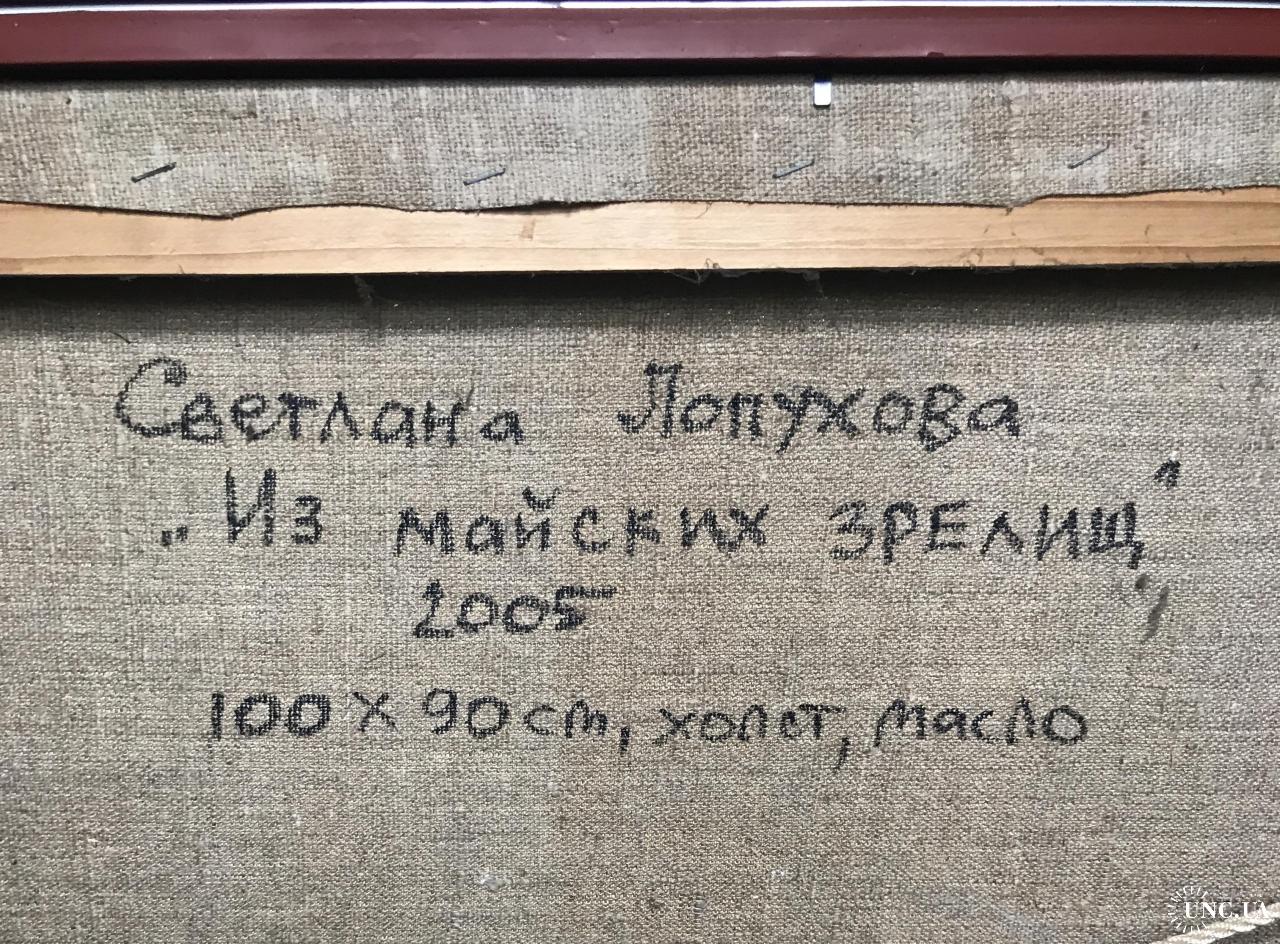 Светлана Лопухова
„Из майских зрелищ"
2005
100 х 90 cm, холст, масло
UNC.UA